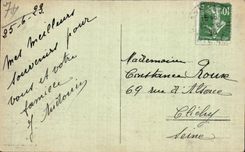 25-6-23
Mes meilleurs
souvenirs pour
vous et votre
famille
J Audouin
Mademoiselle
Constance Roux
69 rue d'Alsace
Clichy
Seine